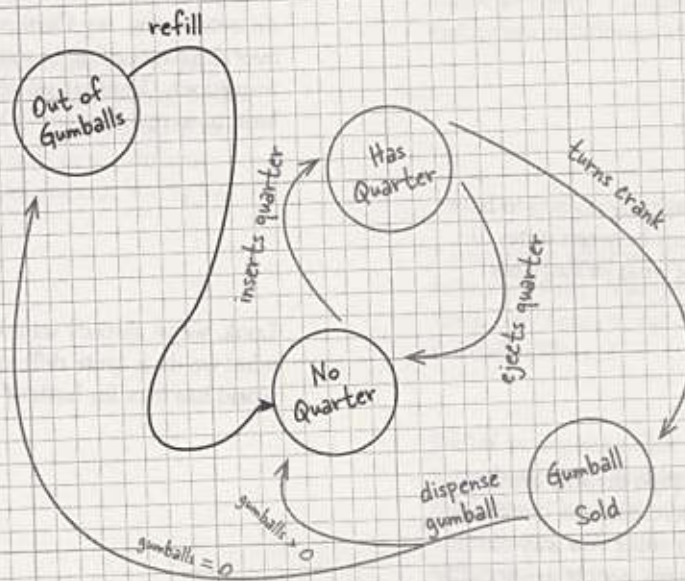 refill
Out of
Gumballs
Has
Quarter
turns crank
inserts quarter
ejects quarter
No
Quarter
Gumball
Sold
dispense
gumball
gumballs > 0
gumballs = 0